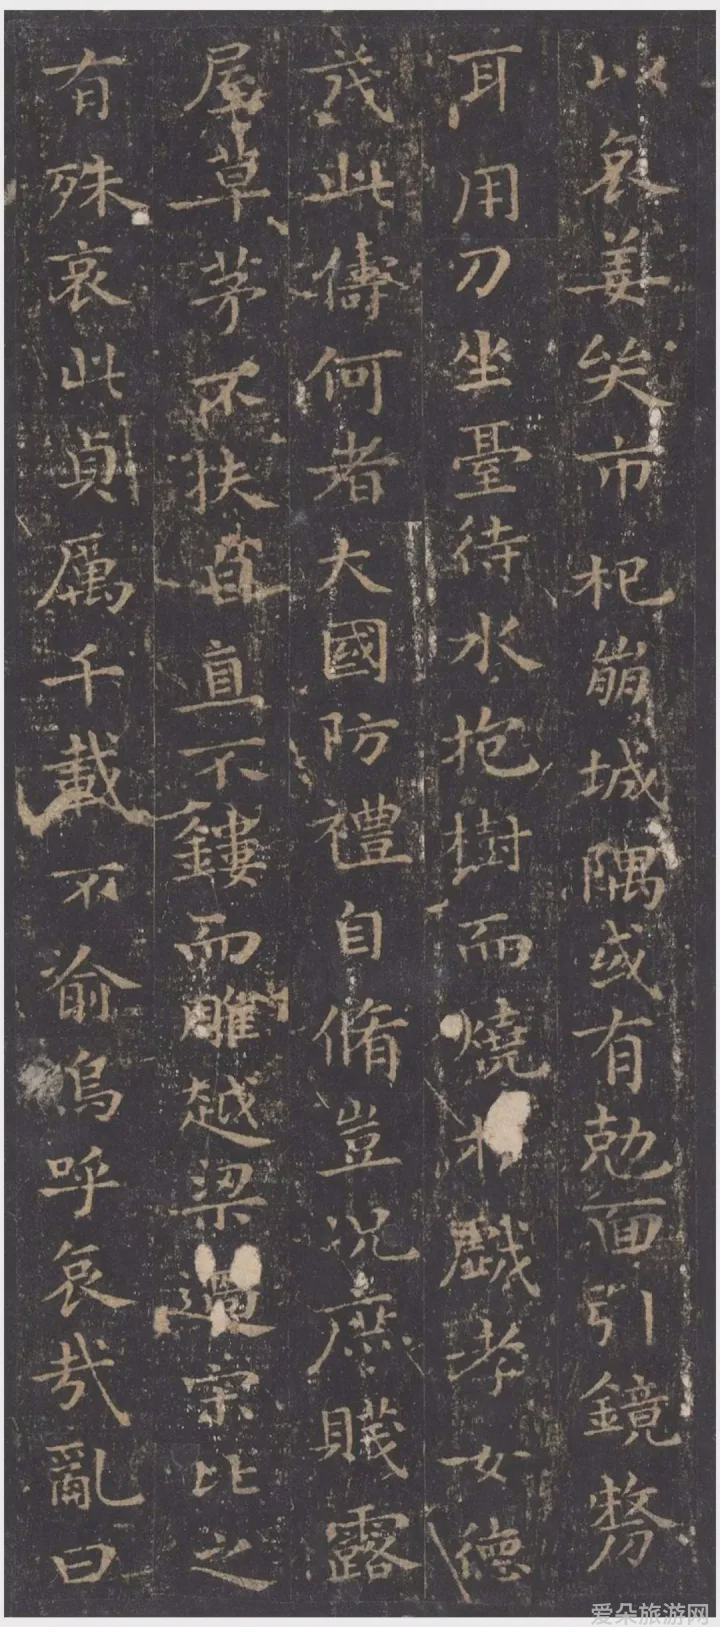 以哀姜哭市杞崩城隅或有尅面引鏡剺
耳用刀坐臺待水抱樹而燒於戲孝女德
茂此儔何者大國防禮自脩豈況庶賤露
屋草茅不扶自直不鏤而雕越梁過宋比之
有殊哀此貞厲千載不渝嗚呼哀哉亂曰
爱朵旅游网